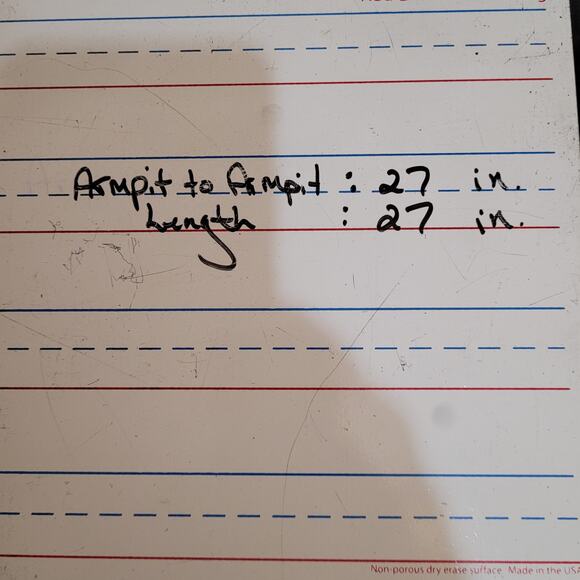 Armpit to Armpit : 27 in.
Length : 27 in.
Non-porous dry erase surface Made in the USA